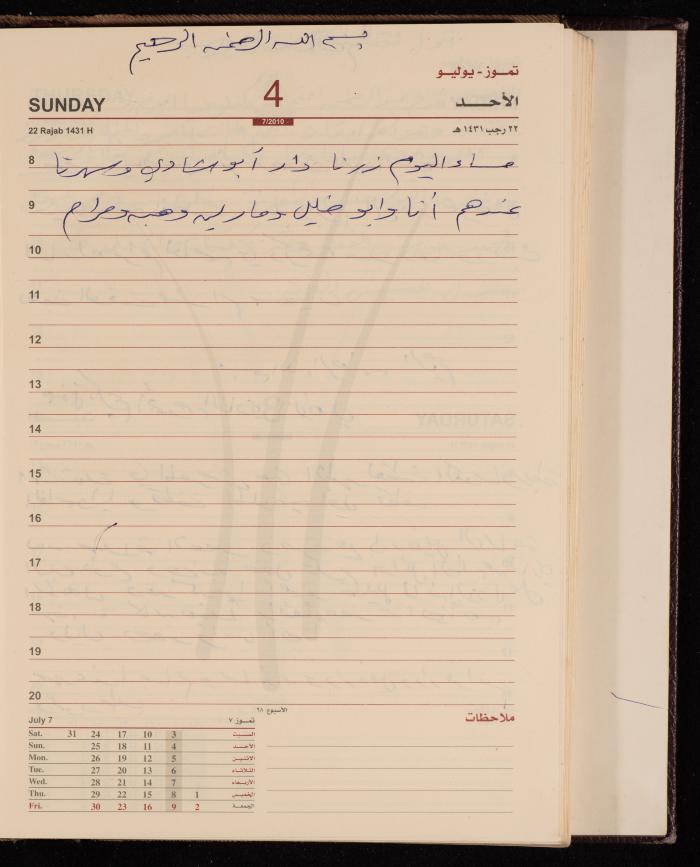 بسم الله الرحمن الرحيم
تمـوز - يوليـو
SUNDAY 4 الأحـــد
7/2010
22 Rajab 1431 H ٢٢ رجب ١٤٣١ هـ
8 مساء اليوم زرنا دار أبو شادي وسهرنا
9 عندهم أنا وابو خليل ومارلين وهبه ومرام
10
11
12
13
14
15
16
17
18
19
20
الأسبوع ٢٨
July 7 تمـوز ٧ ملاحظات
Sat. 31 24 17 10 3 السبت
Sun. 25 18 11 4 الأحد
Mon. 26 19 12 5 الاثنين
Tue. 27 20 13 6 الثلاثاء
Wed. 28 21 14 7 الأربعاء
Thu. 29 22 15 8 1 الخميس
Fri. 30 23 16 9 2 الجمعة